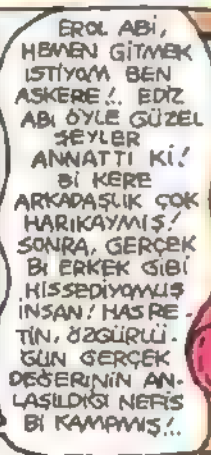 EROL ABİ,
HEMEN GİTMEK
İSTİYOM BEN
ASKERE!.. EDİZ
ABİ ÖYLE GÜZEL
ŞEYLER
ANNATTI Kİ!
Bİ KERE
ARKADAŞLIK ÇOK
HARİKAYMIŞ!
SONRA, GERÇEK
Bİ ERKEK GİBİ
HİSSEDİYOMUŞ
İNSAN! HASRE-
TİN, ÖZGÜRLÜ-
ĞÜN GERÇEK
DEĞERİNİN AN-
LAŞILDIĞI NEFİS
Bİ KAMPMIŞ!..